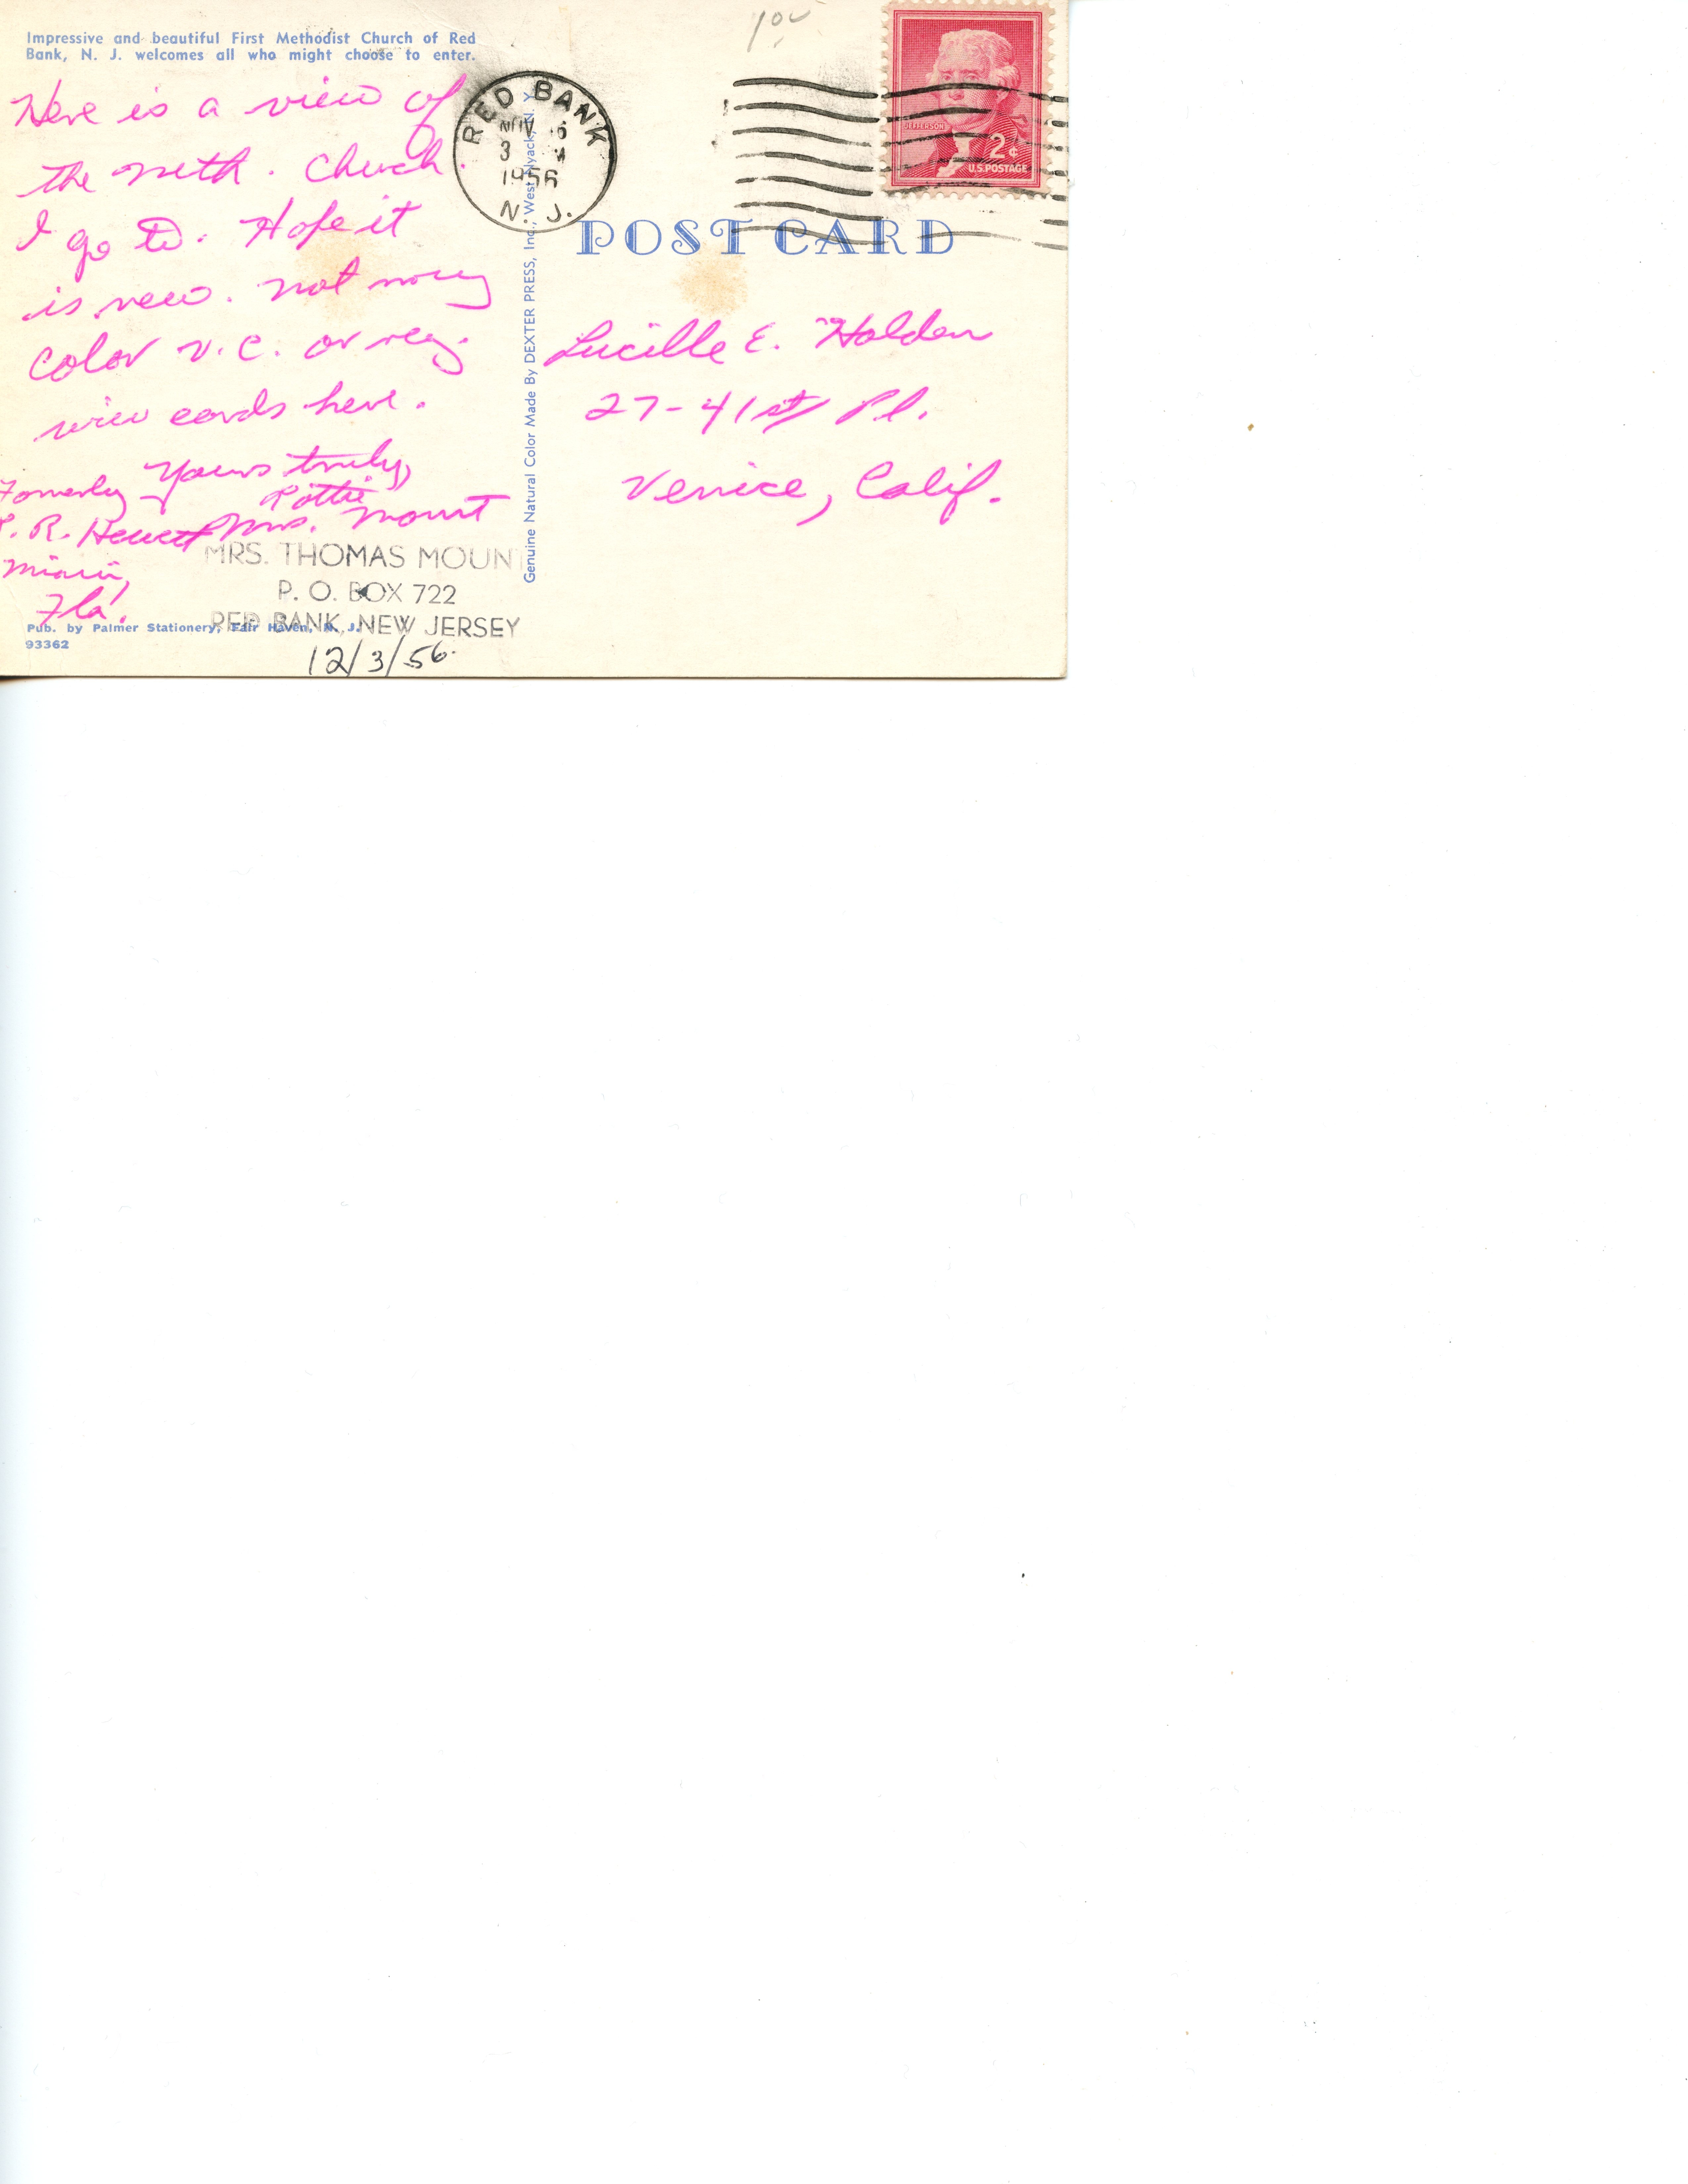 Impressive and beautiful First Methodist Church of Red
Bank, N. J. welcomes all who might choose to enter.
Here is a view of
the Meth. Church.
I go to. Hope it
is new. Not many
color v.c. or reg.
view cards here.
Yours truly,
Lottie
Mrs. Mount
Formerly
L. R. Hewett
Miami,
Fla.
MRS. THOMAS MOUNT
P. O. BOX 722
RED BANK, NEW JERSEY
12/3/56.
Pub. by Palmer Stationery, Fair Haven, N. J.
93362
Genuine Natural Color Made By DEXTER PRESS, Inc., West Nyack, N. Y.
RED BANK
NOV 6
3 M
1956
N. J.
JEFFERSON
2¢
U.S. POSTAGE
POST CARD
Lucille E. Holden
27-41st Pl.
Venice, Calif.